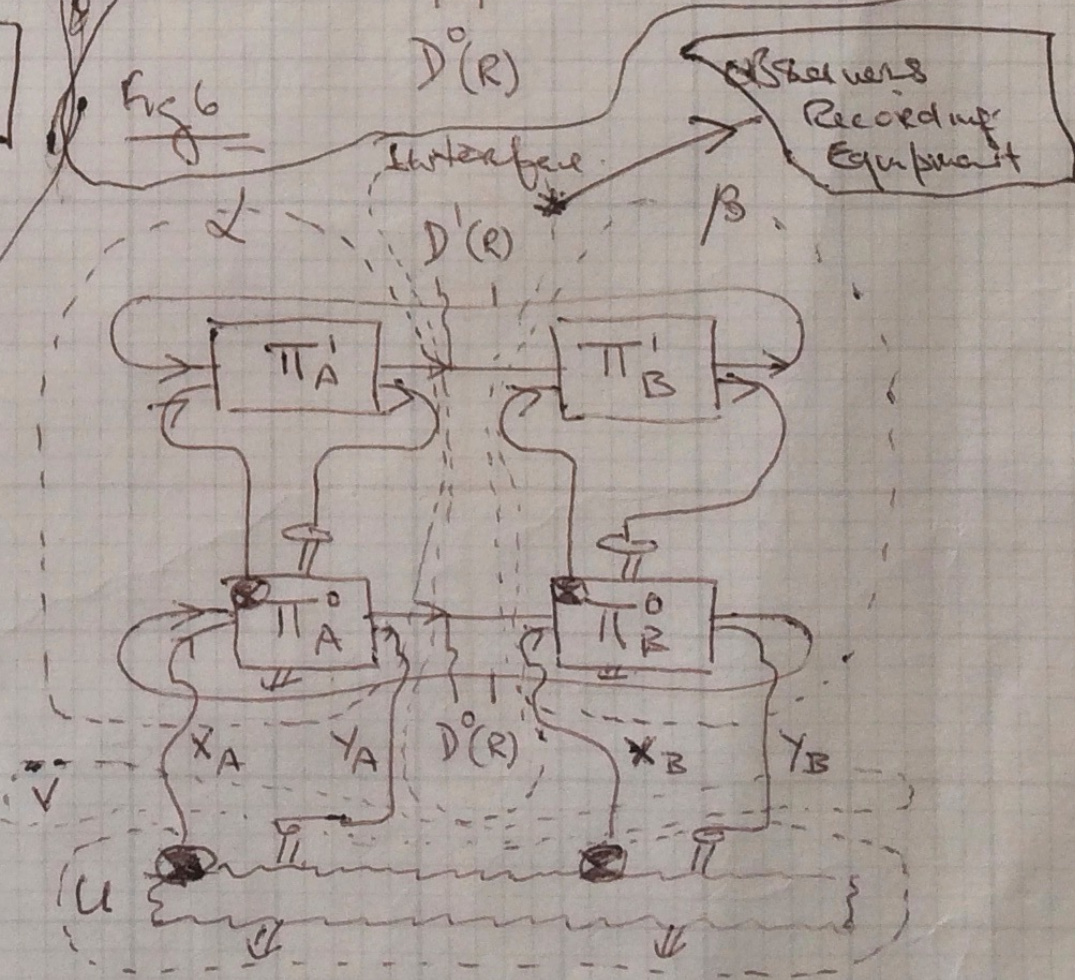 D⁰(R)
Fig 6
Observers
Recording
Equipment
Interface
α
β
D¹(R)
Π¹A
Π¹B
Π⁰A
Π⁰B
XA
YA
D⁰(R)
XB
YB
V
U